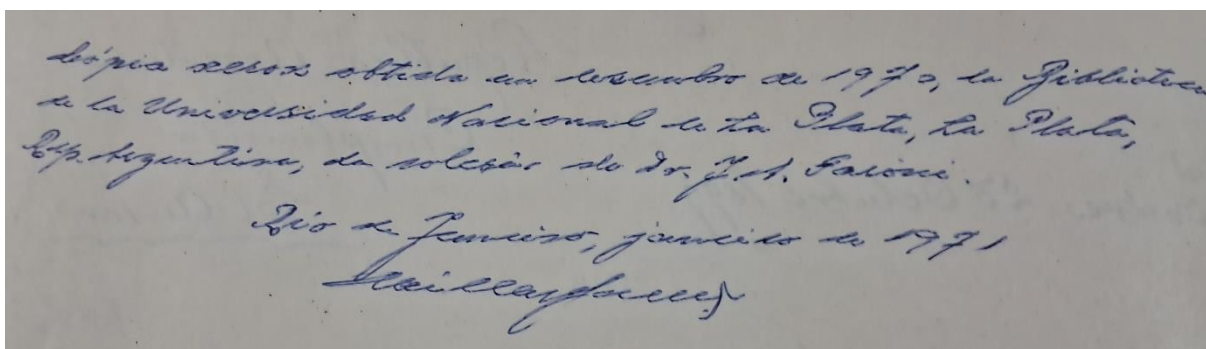 Cópia xerox obtida em dezembro de 1970, da Biblioteca
de la Universidad Nacional de La Plata, La Plata,
Rep. Argentina, da coleção do Dr. J. A.
Rio de Janeiro, janeiro de 1971